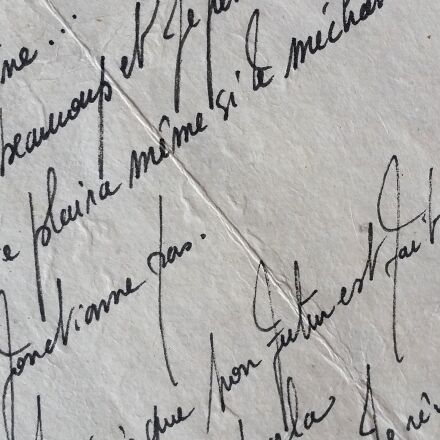 me...
beaucoup et je
plaira même si le méchan
fonctionne pas.
que pon futur est fait
la